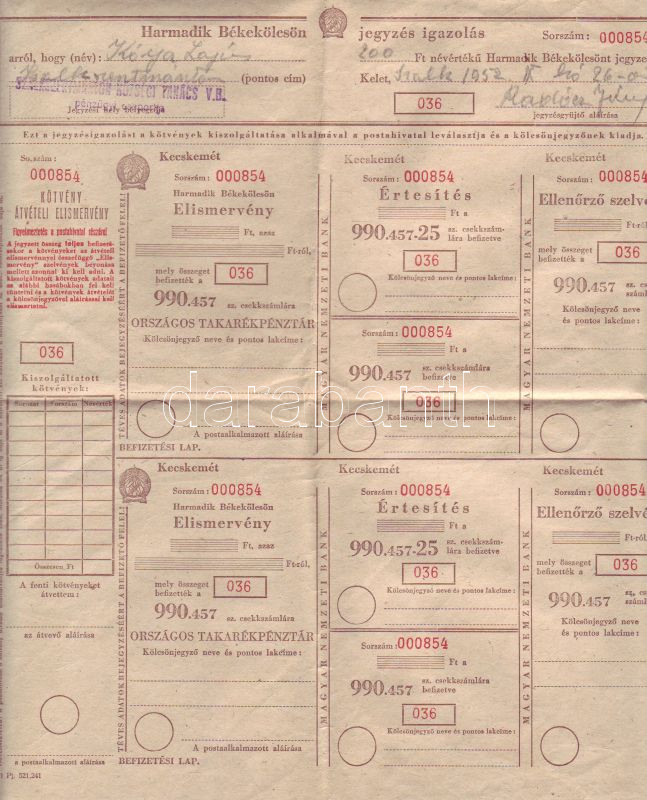 Harmadik Békekölcsön jegyzés igazolás
Sorszám: 000854
arról, hogy (név): Kótja Lajos 200 Ft névértékű Harmadik Békekölcsönt jegyze
(pontos cím) Kelet, Szalk 1952 26-
KÖZSÉGI TANÁCS V.B.
Jegyzési hely bélyegzője
036
jegyzésgyűjtő aláírása
Ezt a jegyzésigazolást a kötvények kiszolgáltatása alkalmával a postahivatal leválasztja és a kölcsönjegyzőnek kiadja.
So.szám:
000854
KÖTVÉNY
ÁTVÉTELI ELISMERVÉNY
Figyelmeztetés a postahivatal részére!
A jegyzett összeg teljes befizeté-
sekor a kötvényeket az átvételi
elismervénnyel összefüggő „Elis-
mervény" szelvények bevonása
mellett azonnal ki kell adni. A
kiszolgáltatott kötvények adatait
az alábbi hasábokban fel kell
tüntetni és a kötvények átvételét
a kölcsönjegyzővel aláírással kell
elismertetni.
036
Kiszolgáltatott
kötvények:
Sorozat Sorszám Névérték
Összesen Ft
A fenti kötvényeket
átvettem:
az átvevő aláírása
a postaalkalmazott aláírása
Pj. 521,241
Kecskemét
Sorszám: 000854
Harmadik Békekölcsön
Elismervény
Ft, azaz
Ft-ról,
mely összeget
befizették a
036
990.457 sz. csekkszámlára
ORSZÁGOS TAKARÉKPÉNZTÁR
Kölcsönjegyző neve és pontos lakcíme:
A postaalkalmazott aláírása
BEFIZETÉSI LAP.
TÉVES ADATOK BEJEGYZÉSÉÉRT A BEFIZETŐ FELEL!
Kecskemét
Sorszám: 000854
Értesítés
Ft a
990.457-25 sz. csekkszám-
lára befizetve
036
Kölcsönjegyző neve és pontos lakcíme:
Sorszám: 000854
Ft a
990.457 sz. csekkszámlára
befizetve
036
Kölcsönjegyző neve és pontos lakcíme:
MAGYAR NEMZETI BANK
Kecskemét
Sorszám: 00085
Ellenőrző szelv
Ft-ról,
mely összeget
befizették a
036
990.457 sz. cse
számlá
Kölcsönjegyző neve
és pontos lakcíme:
MAGYAR NEMZETI BANK
darabanth
Kecskemét
Sorszám: 000854
Harmadik Békekölcsön
Elismervény
Ft, azaz
Ft-ról,
mely összeget
befizették a
036
990.457 sz. csekkszámlára
ORSZÁGOS TAKARÉKPÉNZTÁR
Kölcsönjegyző neve és pontos lakcíme:
A postaalkalmazott aláírása
BEFIZETÉSI LAP.
TÉVES ADATOK BEJEGYZÉSÉÉRT A BEFIZETŐ FELEL!
Kecskemét
Sorszám: 000854
Értesítés
Ft a
990.457-25 sz. csekkszám-
lára befizetve
036
Kölcsönjegyző neve és pontos lakcíme:
Sorszám: 000854
Ft a
990.457 sz. csekkszámlára
befizetve
036
Kölcsönjegyző neve és pontos lakcíme:
MAGYAR NEMZETI BANK
Kecskemét
Sorszám: 00085
Ellenőrző szelvé
Ft-ról,
mely összeget
befizették a
036
990.457 sz. c
számlá
Kölcsönjegyző neve
és pontos lakcíme:
MAGYAR NEMZETI BANK